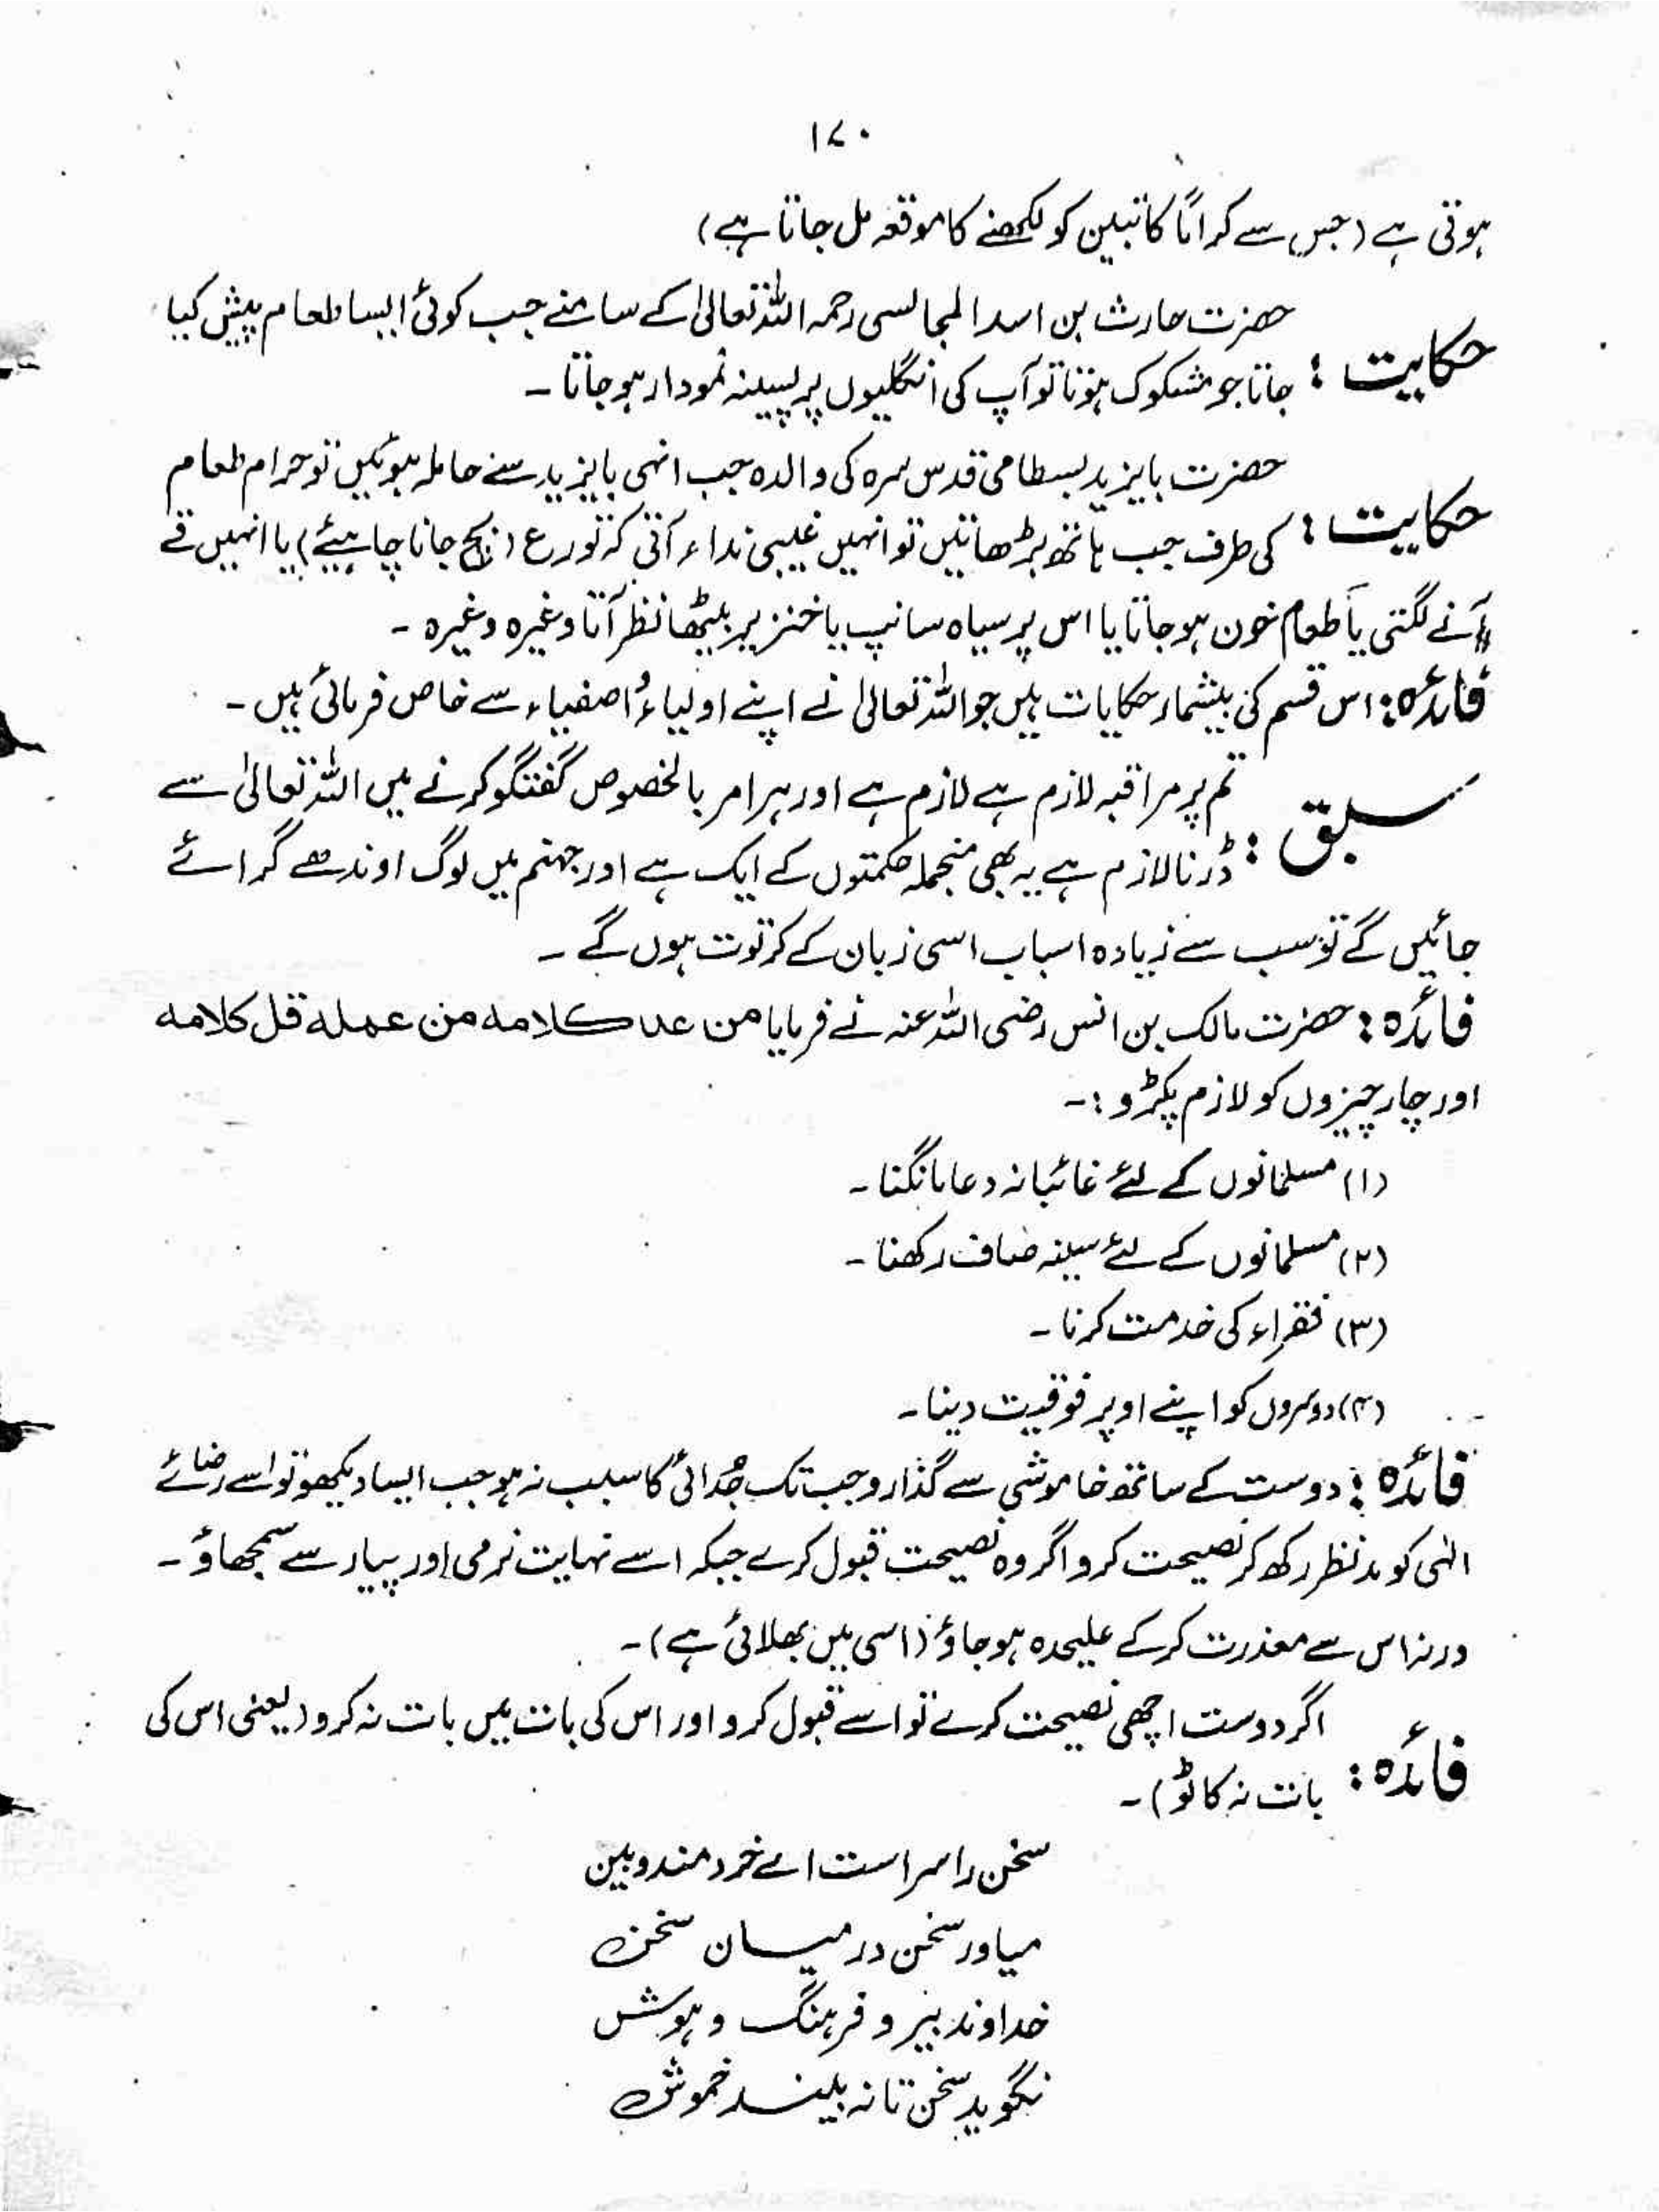 ۱۷۰
ہوتی ہے (جس سے کراماً کاتبین کو لکھنے کا موقعہ مل جاتا ہے)
حکایت : حضرت حارث بن اسد المجالسی رحمہ اللہ تعالیٰ کے سامنے جب کوئی ایسا طعام پیش کیا
جاتا جو مشکوک ہوتا تو آپ کی انگلیوں پر پسینہ نمودار ہو جاتا ۔
حکایت : حضرت بایزید بسطامی قدس سرہ کی والدہ جب انہی بایزید سے حاملہ ہوئیں تو حرام طعام
کی طرف جب ہاتھ بڑھاتیں تو انہیں غیبی نداء آتی کہ تورع (بچ جانا چاہیئے) یا انہیں قے
آنے لگتی یا طعام خون ہو جاتا یا اس پر سیاہ سانپ یا خنزیر بیٹھا نظر آتا وغیرہ وغیرہ ۔
فائدہ : اس قسم کی بیشمار حکایات ہیں جو اللہ تعالیٰ نے اپنے اولیاء و اصفیاء سے خاص فرمائی ہیں ۔
سبق : تم پر مراقبہ لازم ہے لازم ہے اور ہر امر بالخصوص گفتگو کرنے میں اللہ تعالیٰ سے
ڈرنا لازم ہے یہ بھی منجملہ حکمتوں کے ایک ہے اور جہنم میں لوگ اوندھے گرائے
جائیں گے تو سب سے زیادہ اسباب اسی زبان کے کرتوت ہوں گے ۔
فائدہ : حضرت مالک بن انس رضی اللہ عنہ نے فرمایا من عد کلامہ من عملہ قل کلامہ
اور چار چیزوں کو لازم پکڑو :۔
(۱) مسلمانوں کے لئے غائبانہ دعا مانگنا ۔
(۲) مسلمانوں کے لئے سینہ صاف رکھنا ۔
(۳) فقراء کی خدمت کرنا ۔
(۴) دوسروں کو اپنے اوپر فوقیت دینا ۔
فائدہ : دوست کے ساتھ خاموشی سے گذارو جب تک جُدائی کا سبب نہ ہو جب ایسا دیکھو تو اسے رضائے
الٰہی کو مدنظر رکھ کر نصیحت کرو اگر وہ نصیحت قبول کرے جبکہ اسے نہایت نرمی اور پیار سے سمجھاؤ ۔
ورنہ اس سے معذرت کرکے علیحدہ ہو جاؤ (اسی میں بھلائی ہے) ۔
فائدہ : اگر دوست اچھی نصیحت کرے تو اسے قبول کرو اور اس کی بات میں بات نہ کرو (یعنی اس کی
بات نہ کاٹو) ۔
سخن را سر است اے خرد مند و بین
میاور سخن در میان سخن
خداوند بیر و فرہنگ و ہوش
نگوید سخن تا نہ بیند خموش